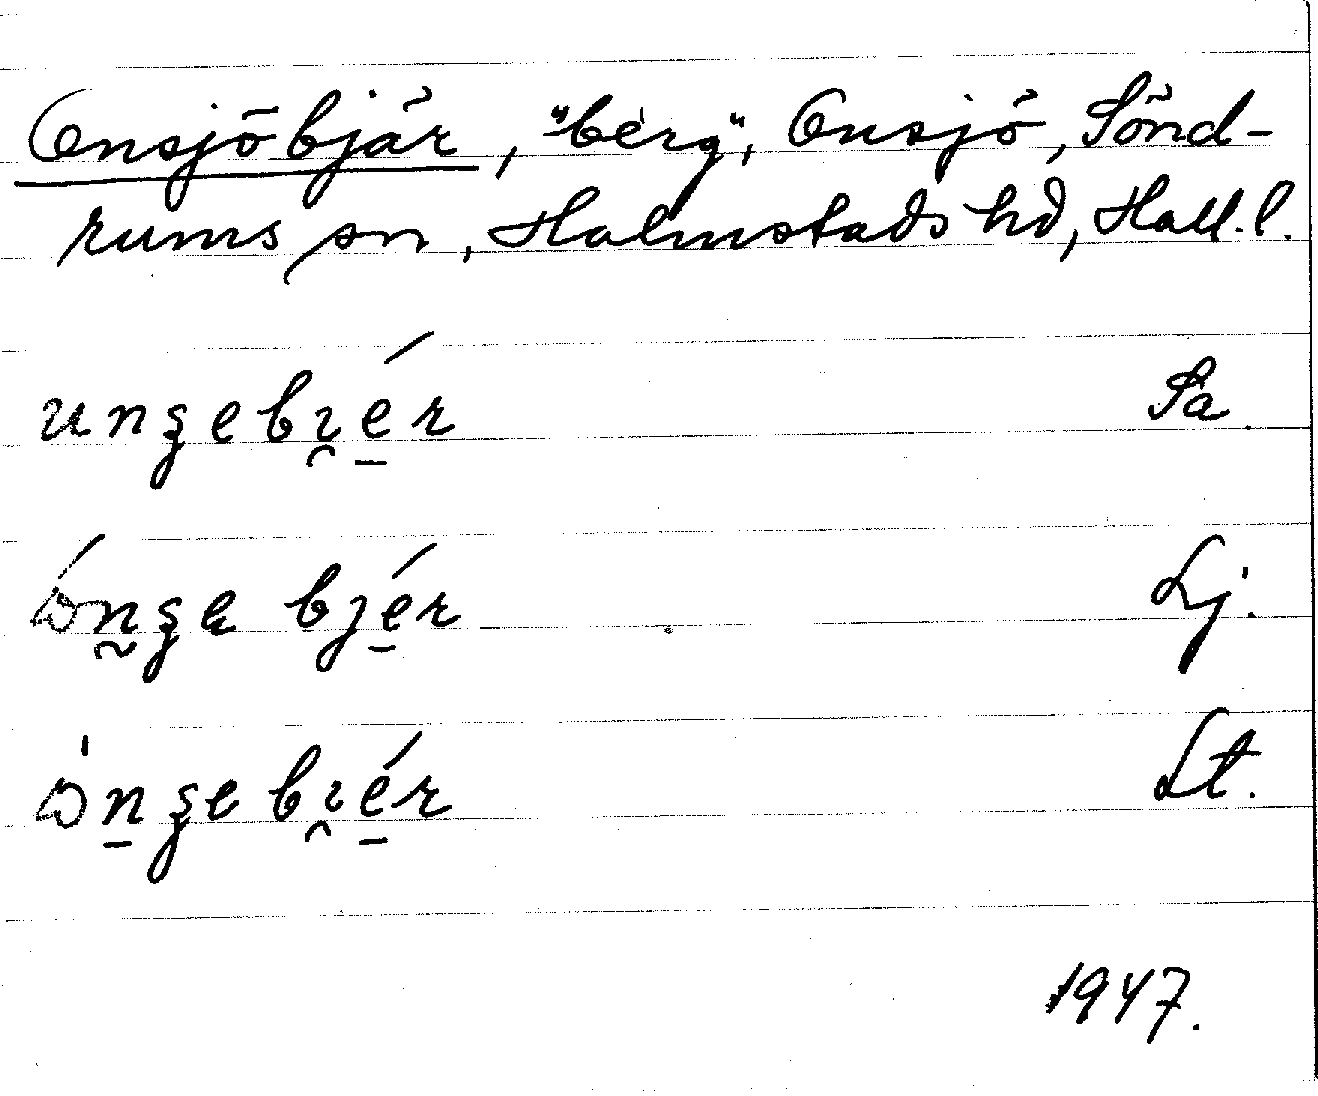 Onsjö bjär, "berg", Onsjö, Sönd-
rums sn, Halmstads hd, Hall. l.
unʂebɪ̯é̱r Sa.
ón̰ʂe bjé̱r Lj.
òṉʂebɪ̯é̱r Lt.
1947.